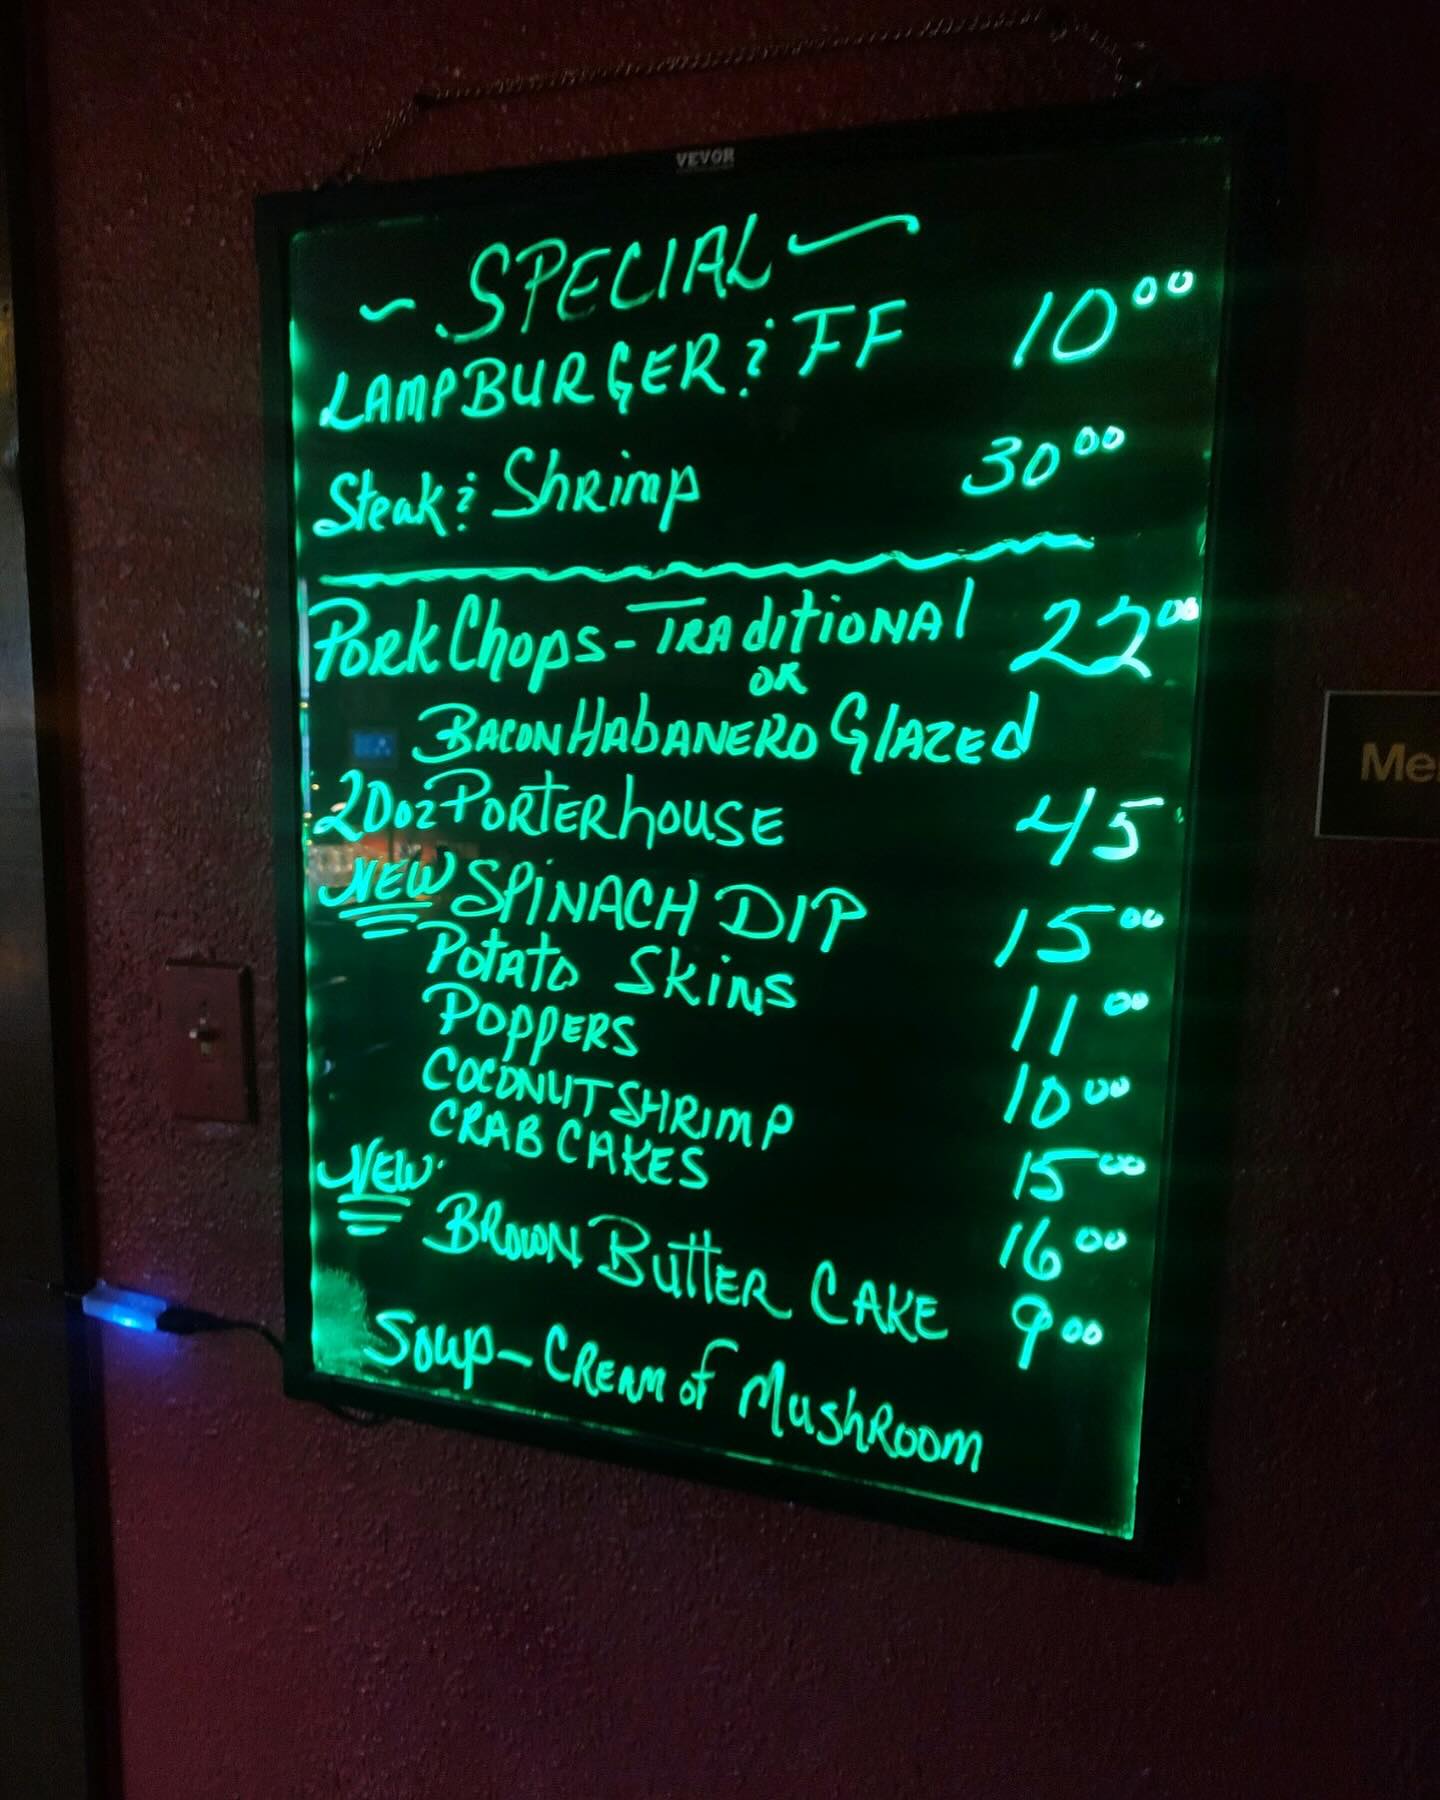 VEVOR
~ SPECIAL ~
LAMPBURGER & FF 10.00
Steak & Shrimp 30.00
Pork Chops - Traditional 22.00
or
Bacon Habanero Glazed
20oz Porterhouse 45
NEW SPINACH DIP 15.00
Potato Skins 11.00
Poppers 10.00
COCONUT SHRIMP 15.00
CRAB CAKES 16.00
NEW Brown Butter Cake 9.00
Soup - Cream of Mushroom
Me